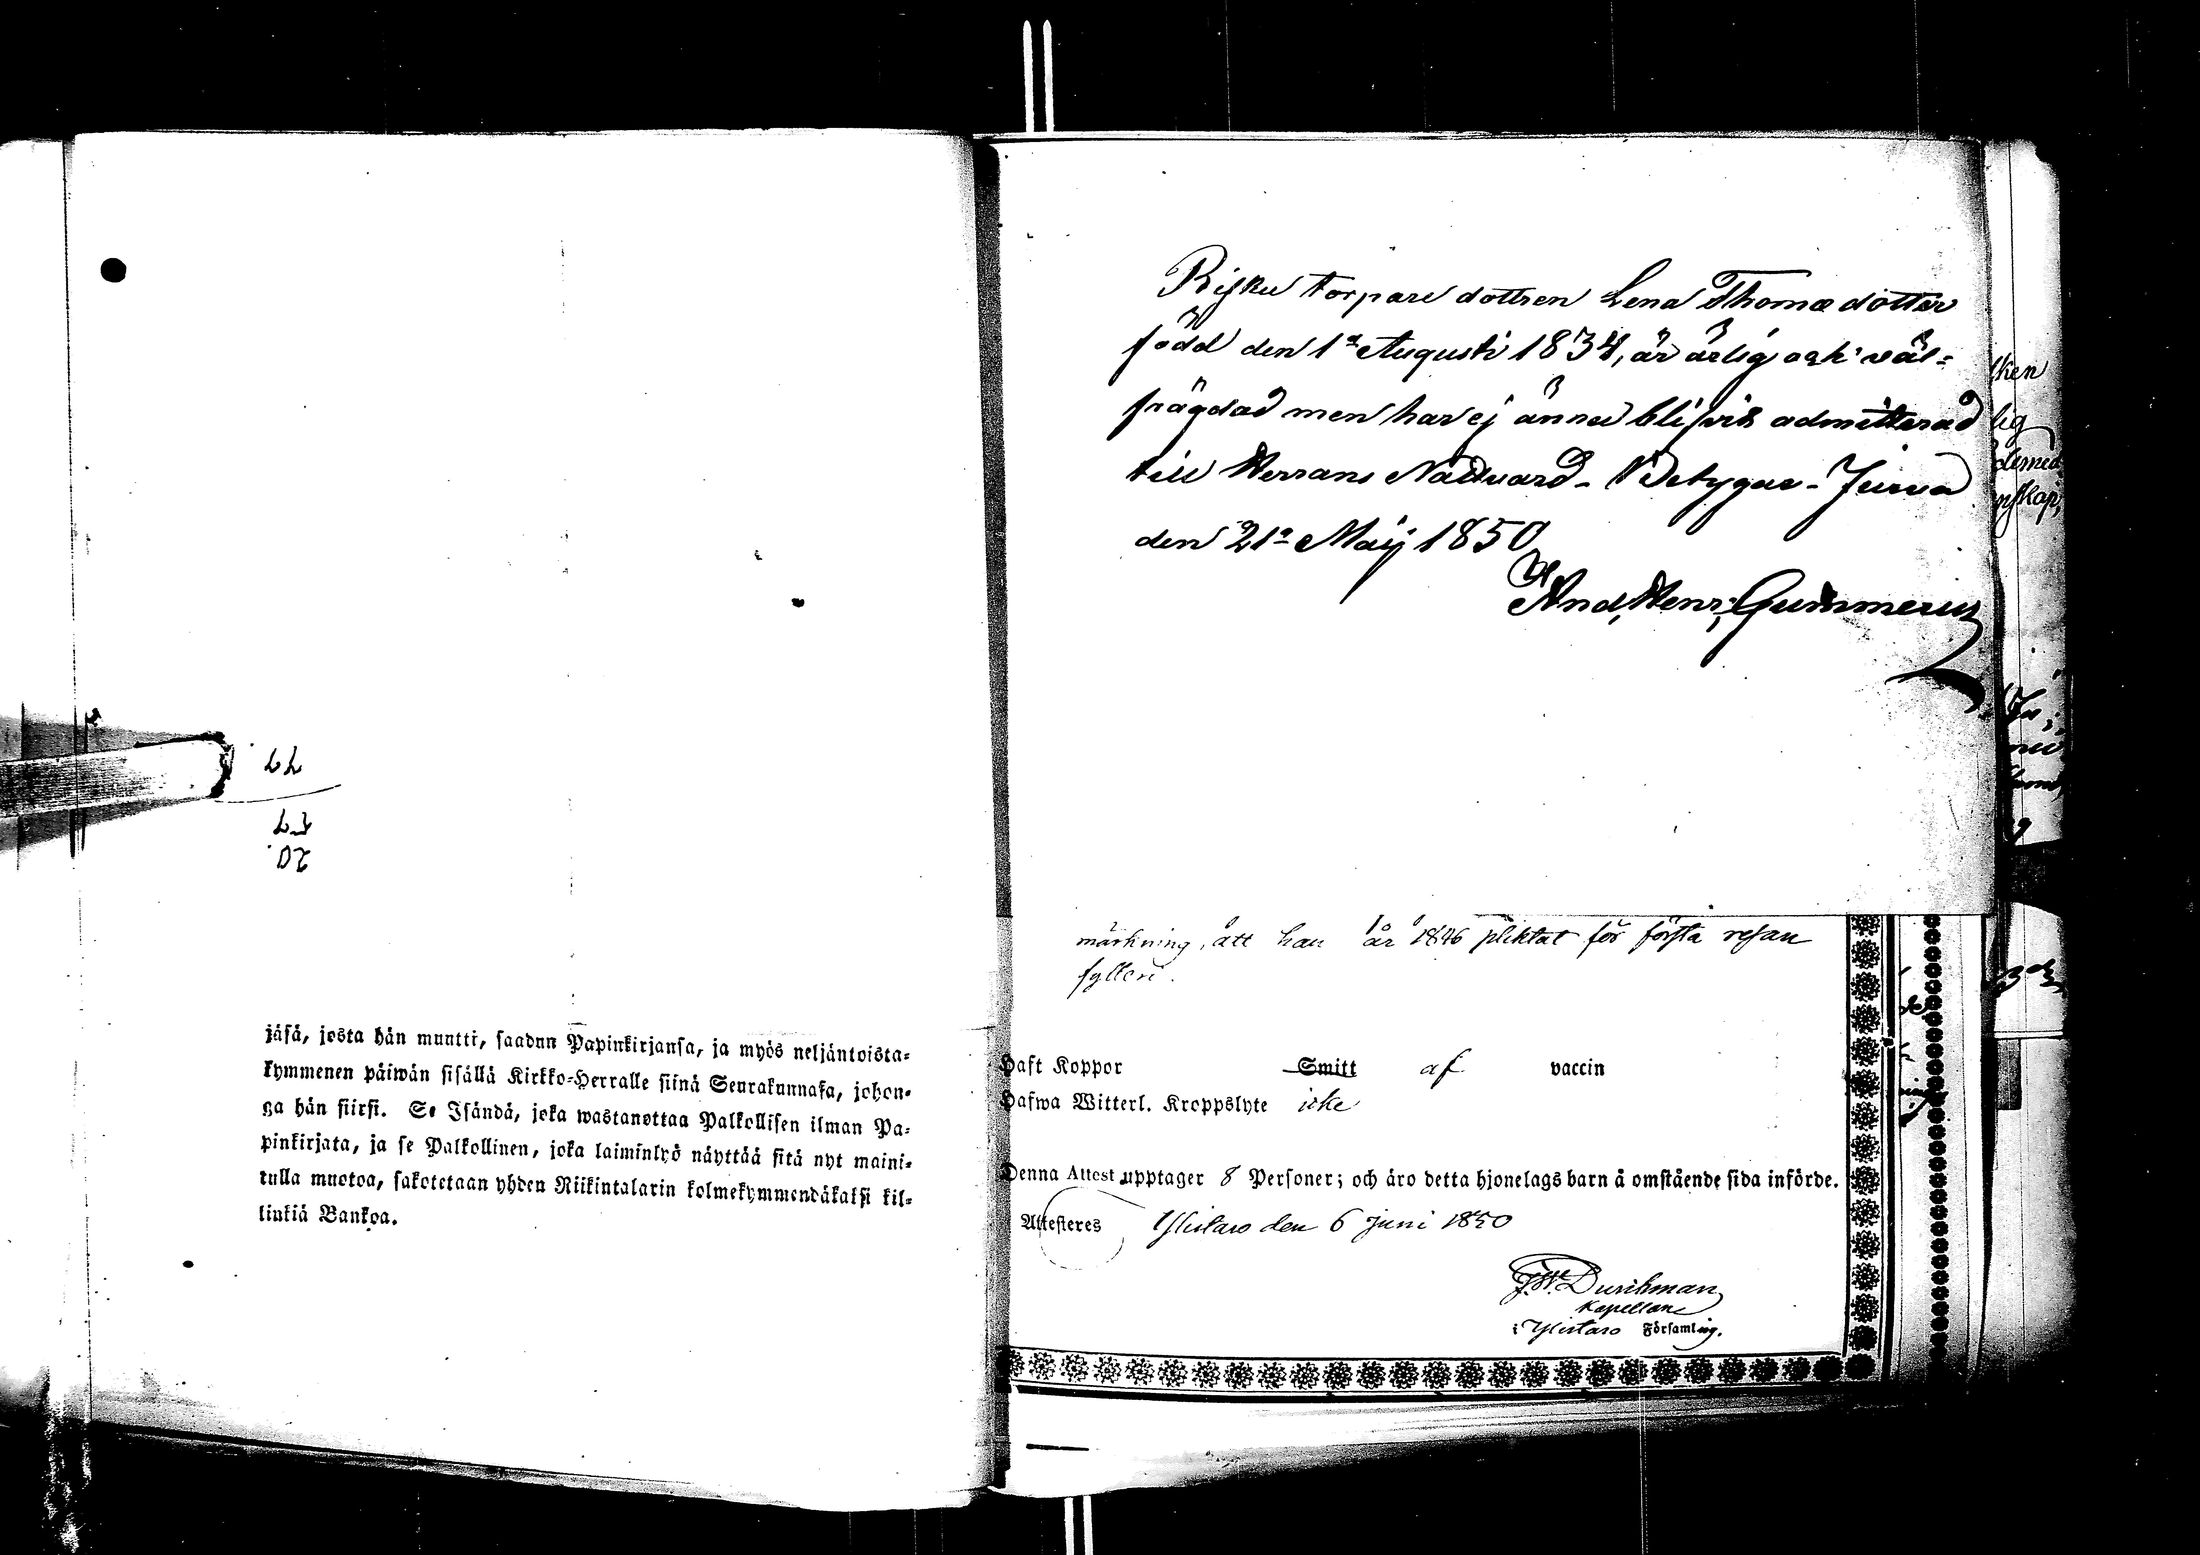 77
57
20.
jäsä, josta hän muutti, saadun Papinkirjansa, ja myös neljäntoista-
kymmenen päiwän sisällä Kirkko-Herralle siinä Seurakunnasa, johon-
ga hän siirsi. Se Isändä, joka wastanottaa Palkollisen ilman Pa-
pinkirjata, ja se Palkollinen, joka laiminlyö näyttää sitä nyt maini-
tulla muotoa, sakotetaan yhden Riikintalarin kolmekymmendäkaksi kil-
linkiä Bankoa.
Risku torpare dottren Lena Thomædotter
född den 1a Augusti 1834, är ärlig och väl-
frägdad men har ej ännu blifvit admitterad
till Herrans Nattvard. Betygar. Jurva
den 21a Maij 1850
And. Henr. Gummerus
märkning, att han år 1846 pliktat för första resan
fylleri.
Haft Koppor Smitt af vaccin
Hafwa Witterl. Kroppslyte icke
Denna Attest upptager 8 Personer; och äro detta hjonelags barn å omstående sida införde.
Attesteres Ylistaro den 6 Juni 1850
F.W. Durchman
Kapellan
i Ylistaro Församling.
ken
lig
nskap,